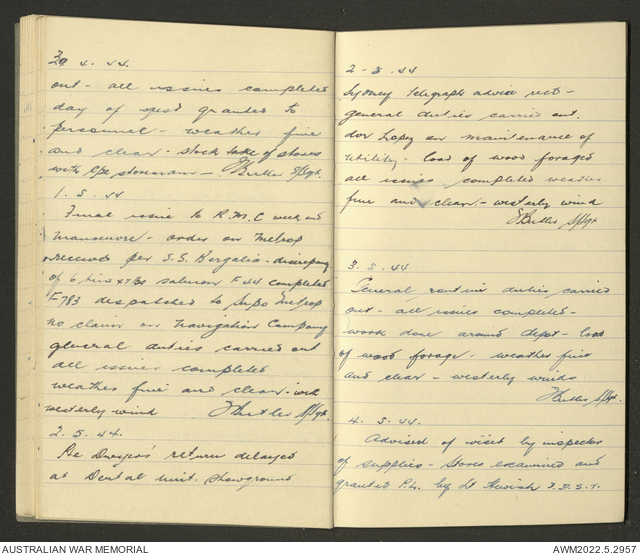 30 4.44.
out - all issues completed
day of rest granted to
personnel - weather fine
and clear. stock take of stores
with storeman - J Butler S/Sgt.
1.5.44
Final issue to R.M.C week end
manoeuvre - order on Metrop
received per S.S. Bergalia - discrepancy
of 6 tins x 7 lbs salmon F 44 completed
F 783 dispatched to Supo Metrop
no claim on Navigation Company
general duties carried out
all issues completed
weather fine and clear -
westerly wind J Butler S/Sgt.
2.5.44.
Pte return delayed
at Dental Unit. Showground
2-5.44
Sydney telegraph advice
general duties carried out.
on maintenance of
utility - load of wood foraged
all issues completed weather
fine and clear - westerly wind
J Butler S/Sgt
3.5.44
General routine duties carried
out - all issues completed -
work done around dept - load
of wood forage - weather fine
and clear - westerly winds
J Butler S/Sgt.
4.5.44.
Advised of visit by inspector
of supplies - Stores examined and
granted by Lt
AUSTRALIAN WAR MEMORIAL
AWM2022.5.2957